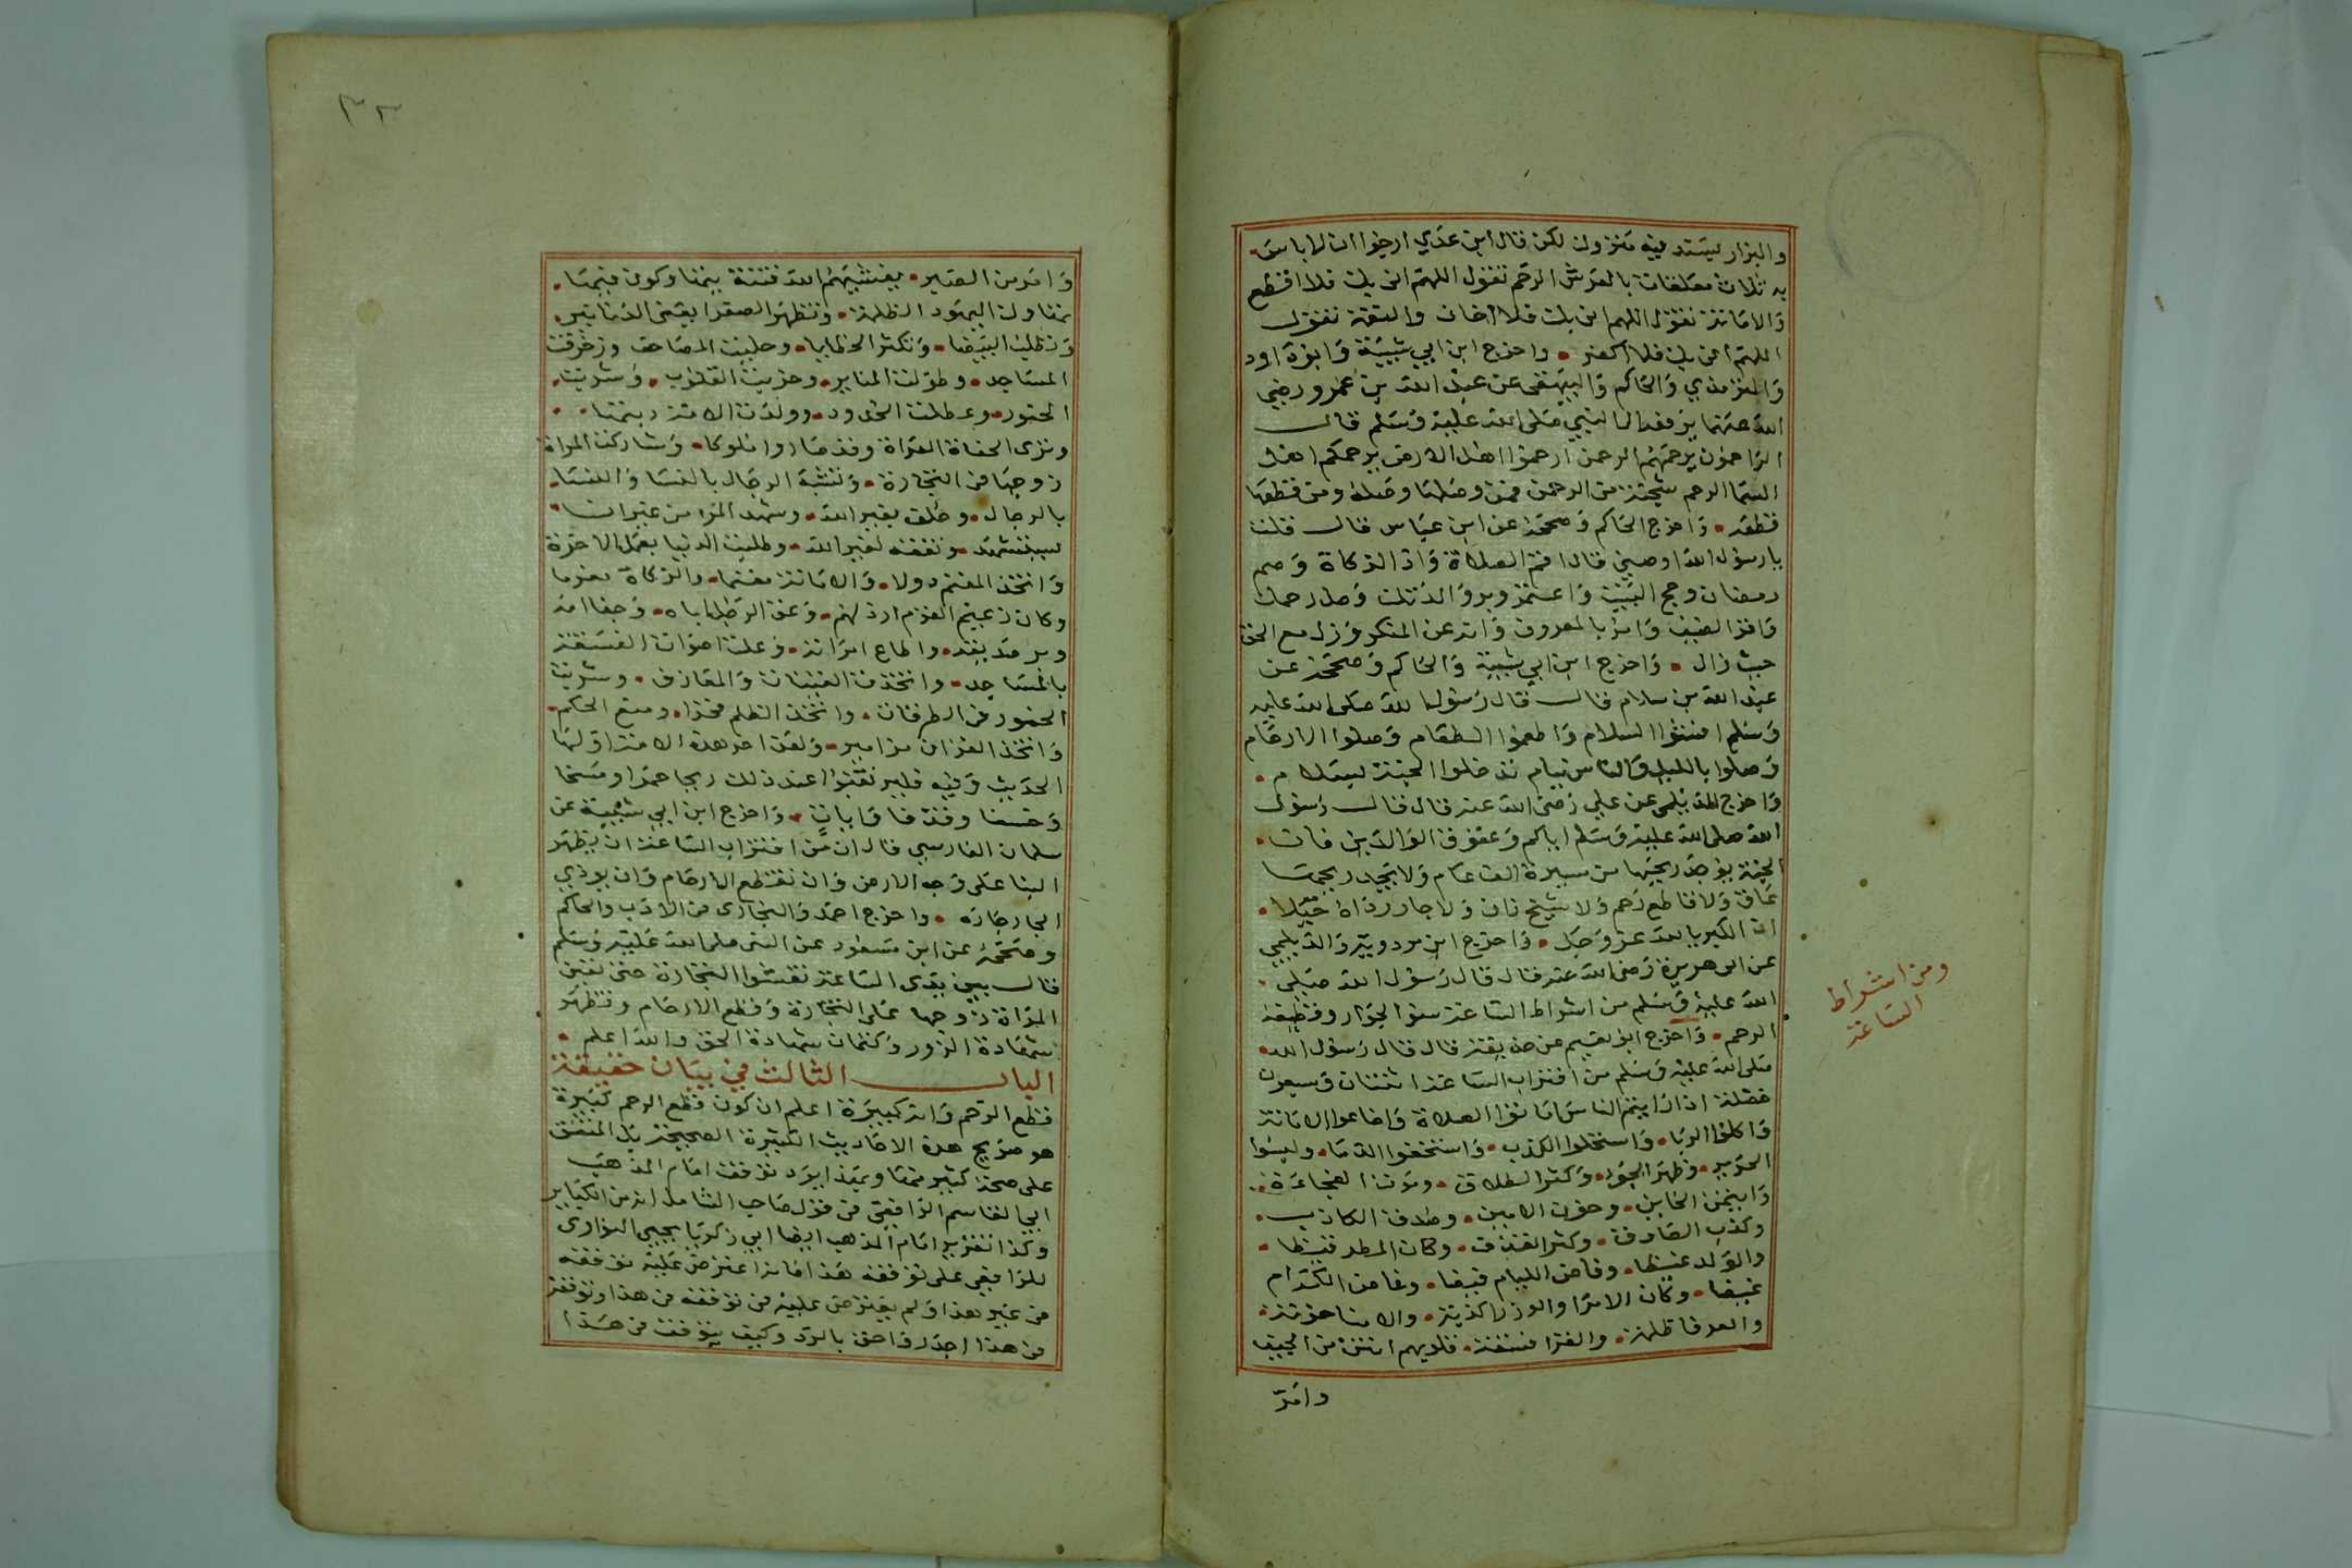 والبزار بسند فيه متروك لكن قال ابن عدي ارجوا ان لا باس
به ثلاث معلقات بالعرش الرحم تقول اللهم اني بك فلا اقطع
والامانة تقول اللهم اني بك فلا اخان والنعمة تقول
اللهم اني بك فلا اكفر واخرج ابن ابي شيبة وابوداود
والترمذي والحاكم والبيهقي عن عبد الله بن عمرو رضي
الله عنهما يرفعه الى النبي صلى الله عليه وسلم قال
الراحمون يرحمهم الرحمن ارحموا اهل الارض يرحمكم اهل
السما الرحم شجنة من الرحمن فمن وصلها وصله ومن قطعها
قطعه واخرج الحاكم وصححه عن ابن عباس قال قلت
يارسول الله اوصيني قال اقم الصلاة واد الزكاة وصم
رمضان وحج البيت واعتمر وبر والديك وصل رحمك
واقر الضيف وامر بالمعروف وانه عن المنكر وزل مع الحق
حيث زال واخرج ابن ابي شيبة والحاكم وصححه عن
عبد الله بن سلام قال قال رسول الله صلى الله عليه
وسلم افشوا السلام واطعموا الطعام وصلوا الارحام
وصلوا بالليل والناس نيام تدخلوا الجنة بسلام
واخرج الديلمي عن علي رضي الله عنه قال قال رسول
الله صلى الله عليه وسلم اياكم وعقوق الوالدين فان
الجنة يوجد ريحها من مسيرة الف عام ولا يجد ريحها
عاق ولا قاطع رحم ولا شيخ زان ولا جار رداه خيلا
ان الكبريا لله عز وجل واخرج ابن مردويه والديلمي
عن ابي هريرة رضي الله عنه قال قال رسول الله صلى
الله عليه وسلم من اشراط الساعة سؤ الجوار وقطيعة
الرحم واخرج ابو نعيم عن حذيفة قال قال رسول الله
صلى الله عليه وسلم من اقتراب الساعة اثنتان وسبعون
خصلة اذا رايتم الناس اماتوا الصلاة واضاعوا الامانة
واكلوا الربا واستحلوا الكذب واستخفوا الدما ولبسوا
الحرير وظهر الجور وكثر الطلاق وموت الفجاءة
وايتمن الخاين وخون الامين وصدق الكاذب
وكذب الصادق وكثر القذف وكان المطر قيظا
والولد غيظا وفاض الليام فيضا وغاض الكرام
غيضا وكان الامرا والوزرا كذبة والامنا خونة
والعرفا ظلمة والقرا فسقة قلوبهم انتن من الجيف
وامر
ومن اشراط
الساعة
٣٢
وامر من الصبر يغشيهم الله فتنة يتهاوكون فيها
تهاوك اليهود الظلمة وتظهر الصفرا يعني الدنانير
وتطلب البيضا وتكثر الخطايا وحليت المصاحف وزخرفت
المساجد وطولت المنابر وخربت القلوب وشربت
الخمور وعطلت الحدود وولدت الامة ربتها
وترى الحفاة العراة وقد صاروا ملوكا وشاركت المراة
زوجها في التجارة وتشبه الرجال بالنسا والنسا
بالرجال وحلف بغير الله وشهد المرء من غير ان
يستشهد وتفقه لغير الله وطلبت الدنيا بعمل الاخرة
واتخذ المغنم دولا والامانة مغنما والزكاة مغرما
وكان زعيم القوم ارذلهم وعق الرجل اباه وجفا امه
وبر صديقه واطاع امراته وعلت اصوات الفسقة
بالمساجد واتخذت القينات والمعازف وشربت
الخمور في الطرقات واتخذ الظلم فخرا وبيع الحكم
واتخذ القران مزامير ولعن اخر هذه الامة اولها
الحديث وفيه فليرتقبوا عند ذلك ريحا حمرا ومسخا
وخسفا وقذفا وايات واخرج ابن ابي شيبة عن
سلمان الفارسي قال ان من اقتراب الساعة ان يظهر
البنا على وجه الارض وان تقطع الارحام وان يوذي
الجار جاره واخرج احمد والبخارى في الادب والحاكم
وصححه عن ابن مسعود عن النبي صلى الله عليه وسلم
قال بين يدى الساعة تفشوا التجارة حتى تعين
المراة زوجها على التجارة وقطع الارحام وتظهر
شهادة الزور وكتمان شهادة الحق والله اعلم
الباب الثالث في بيان حقيقة
قطع الرحم وانه كبيرة اعلم ان كون قطع الرحم كبيرة
هو صريح هذه الاحاديث الكثيرة الصحيحة بل المتفق
على صحة كثير منها وبهذا يرد توقف امام المذهب
ابي القاسم الرافعي في قول صاحب الشامل انه من الكباير
وكذا تقرير امام المذهب ايضا ابي زكريا يحيى النواوى
للرافعي على توقفه هذا فانه اعترض عليه توقفه
في غير هذا ولم يعترض عليه في توقفه في هذا وتوقفه
في هذا اجدر واحق بالرد وكيف يتوقف في هذا